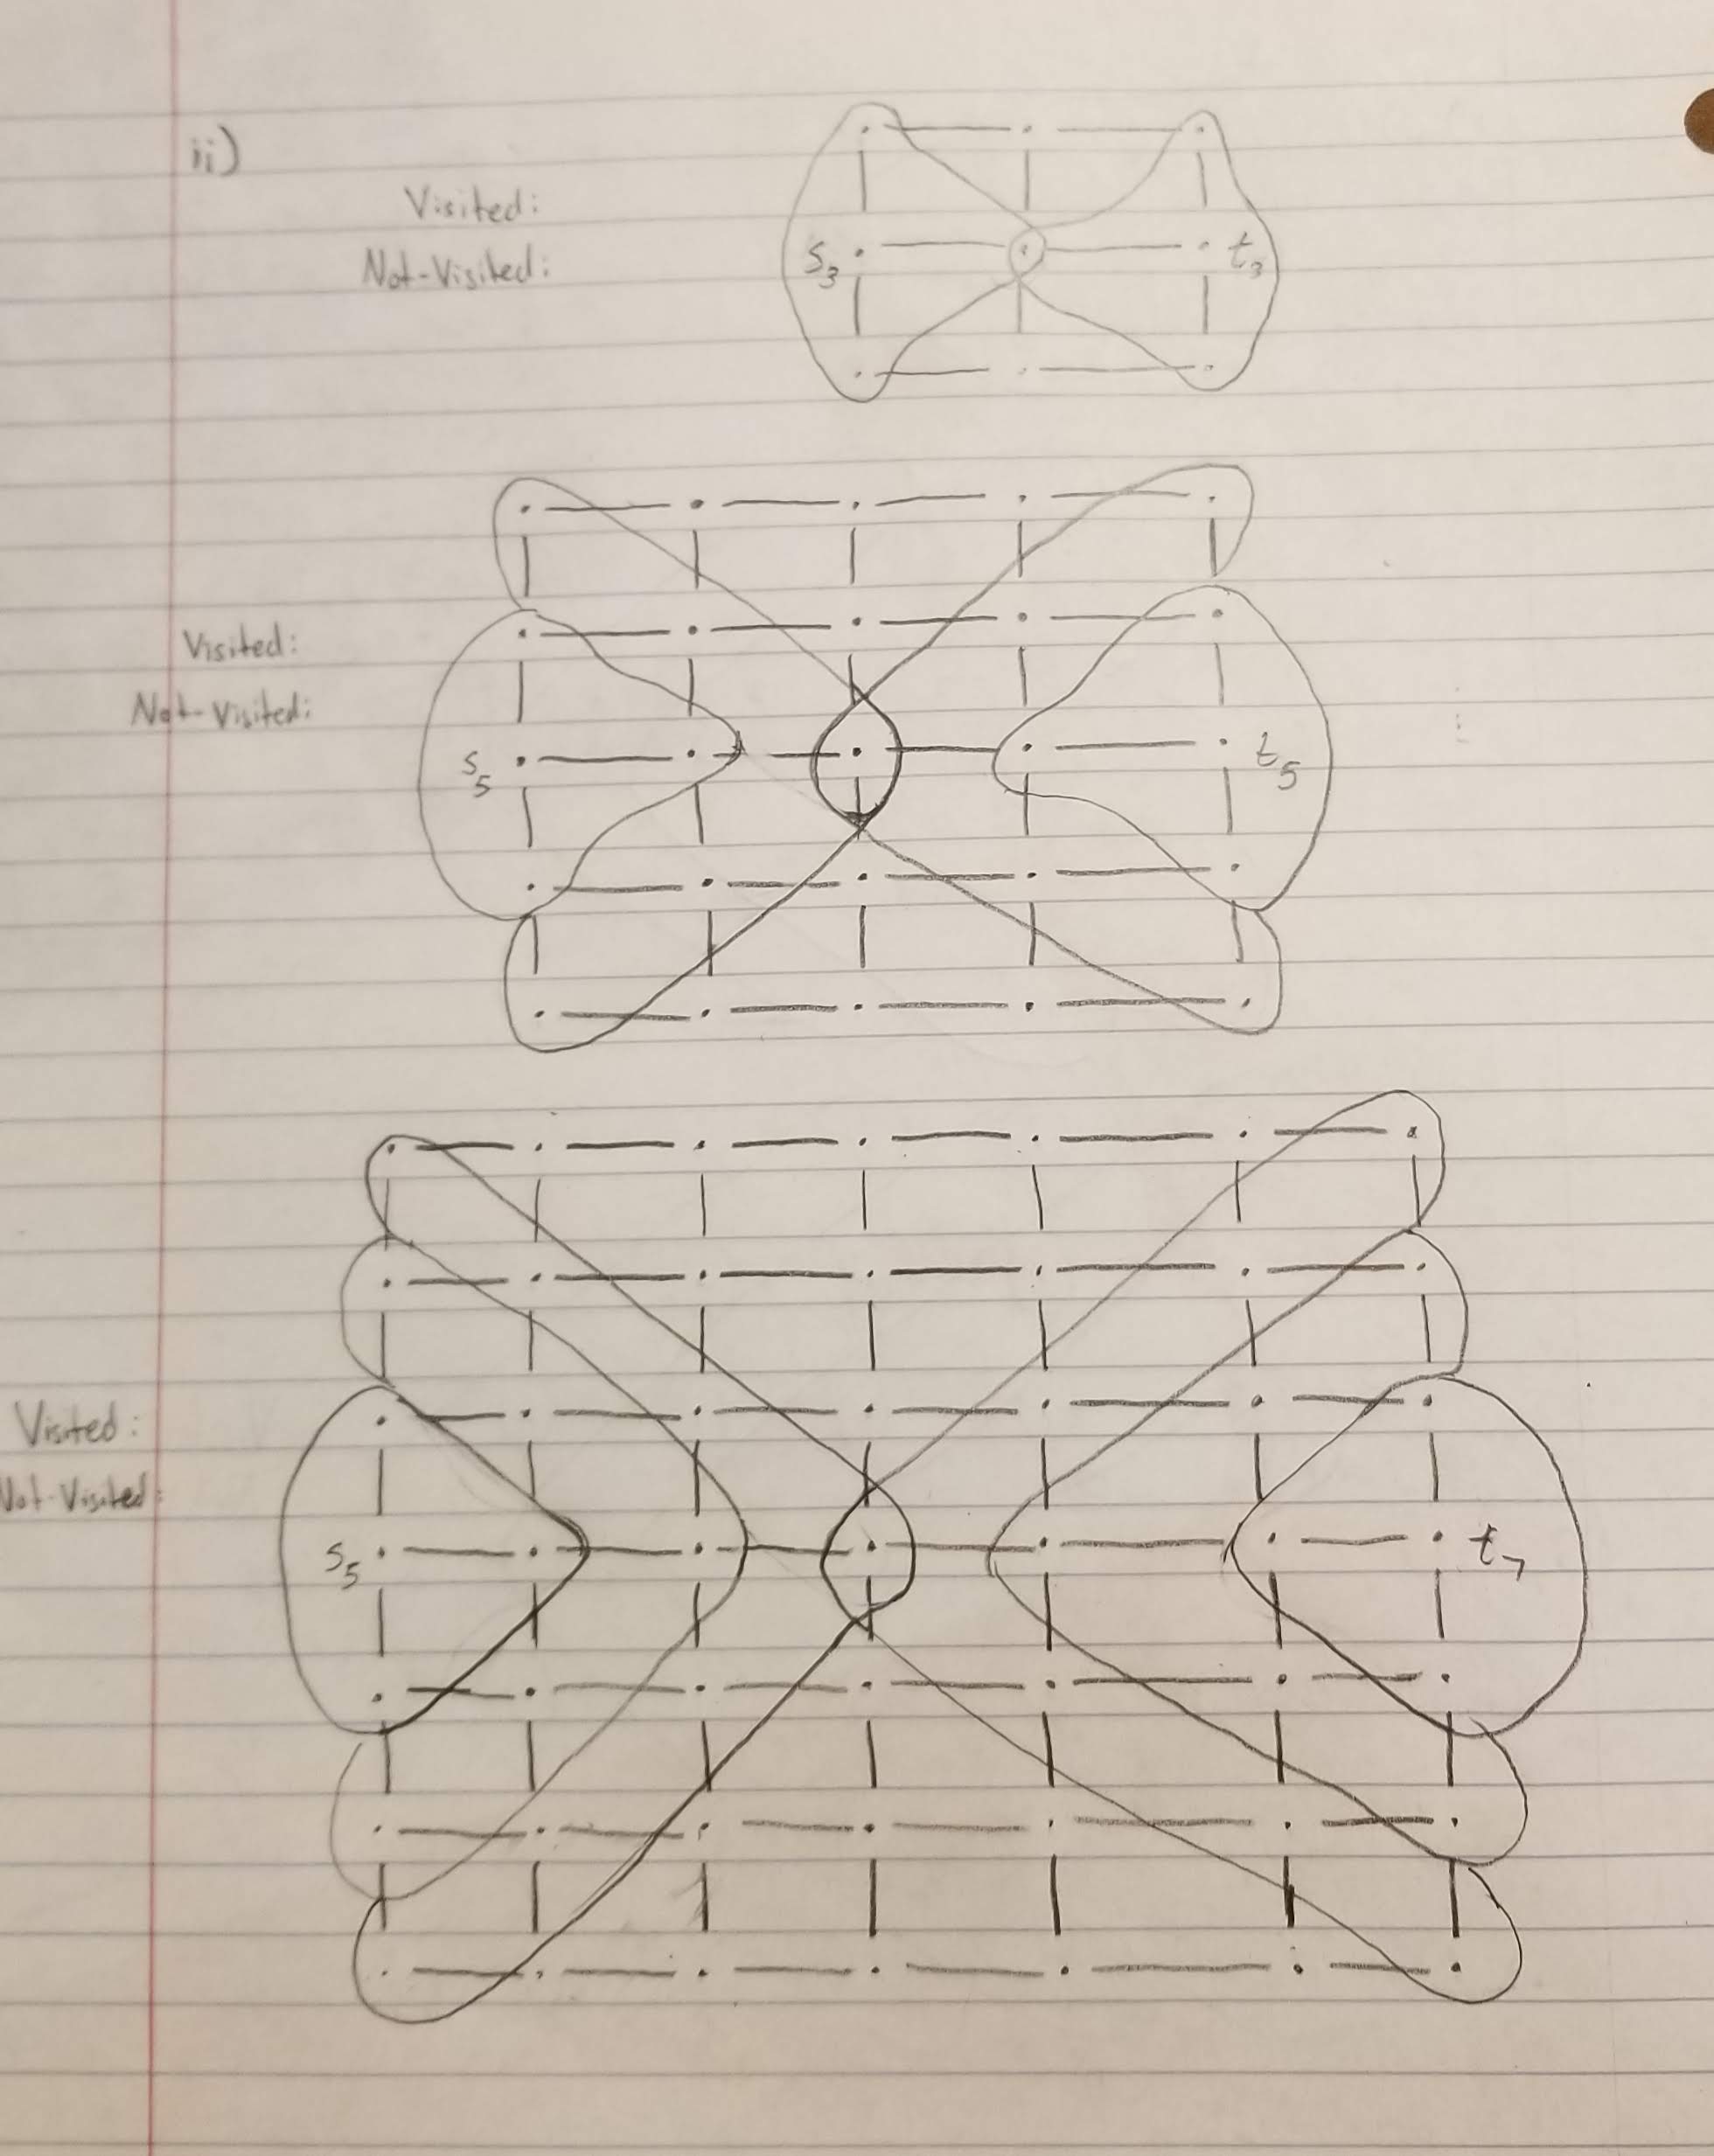 ii)
Visited:
Not-Visited:
s₃ t₃
Visited:
Not-Visited:
s₅ t₅
Visited:
Not-Visited:
s₅ t₇